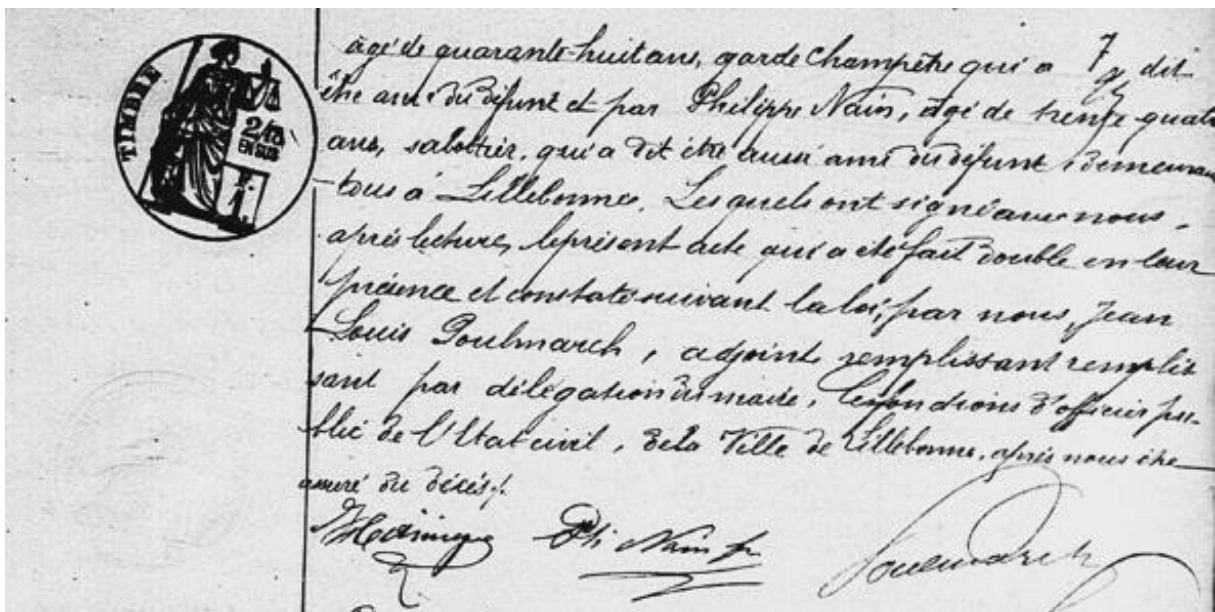 TIMBRE
2/10
EN SUS
1.
âgé de quarante-huit ans, garde Champêtre qui a dit
être ami du défunt et par Philippe Nain, âgé de trente quatre
ans, sabotier, qui a dit être aussi ami du défunt, demeurant
tous à Lillebonne. Lesquels ont signé avec nous,
après lecture, le présent acte qui a été fait double en leur
présence et constaté suivant la loi, par nous, Jean
Louis Poulmarch, adjoint, remplissant remplis
sant par délégation du maire, les fonctions d'officier pu-
blic de l'Etat civil, de la Ville de Lillebonne, après nous être
assuré du décès.
Ph Nain
Poulmarch